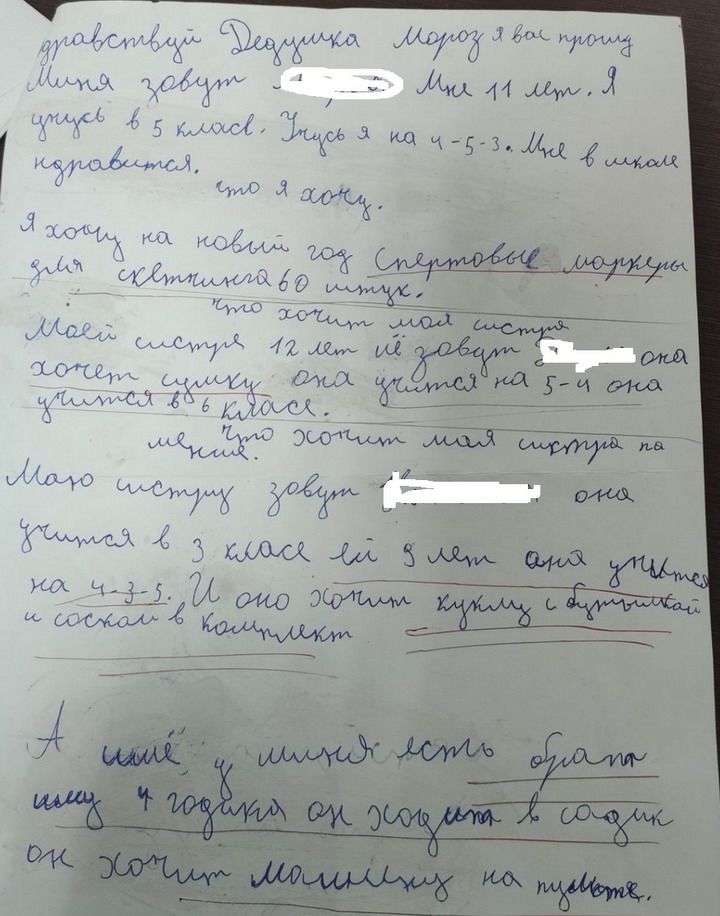 дравствуй Дедушка Мороз я вас прошу
Миня зовут Мне 11 лет. Я
учусь в 5 класе. Учусь я на 4-5-3. Мне в школе
ндравится.
что я хочу.
Я хочу на новый год спертовые маркеры
для скетчинга 60 штук.
что хочит моя систра
Моей систре 12 лет иё зовут она
хочет сумку она учится на 5-4 она
учится в 6 класе.
что хочит моя систра па
меньше.
Маю систру зовут она
учится в 3 класе ей 9 лет она учится
на 4-3-5. И оно хочит куклу с бутылкай
и соской в комплект
А ишё у миня есть брат
иму 4 годика он ходит в садик
он хочит машинку на пульте.